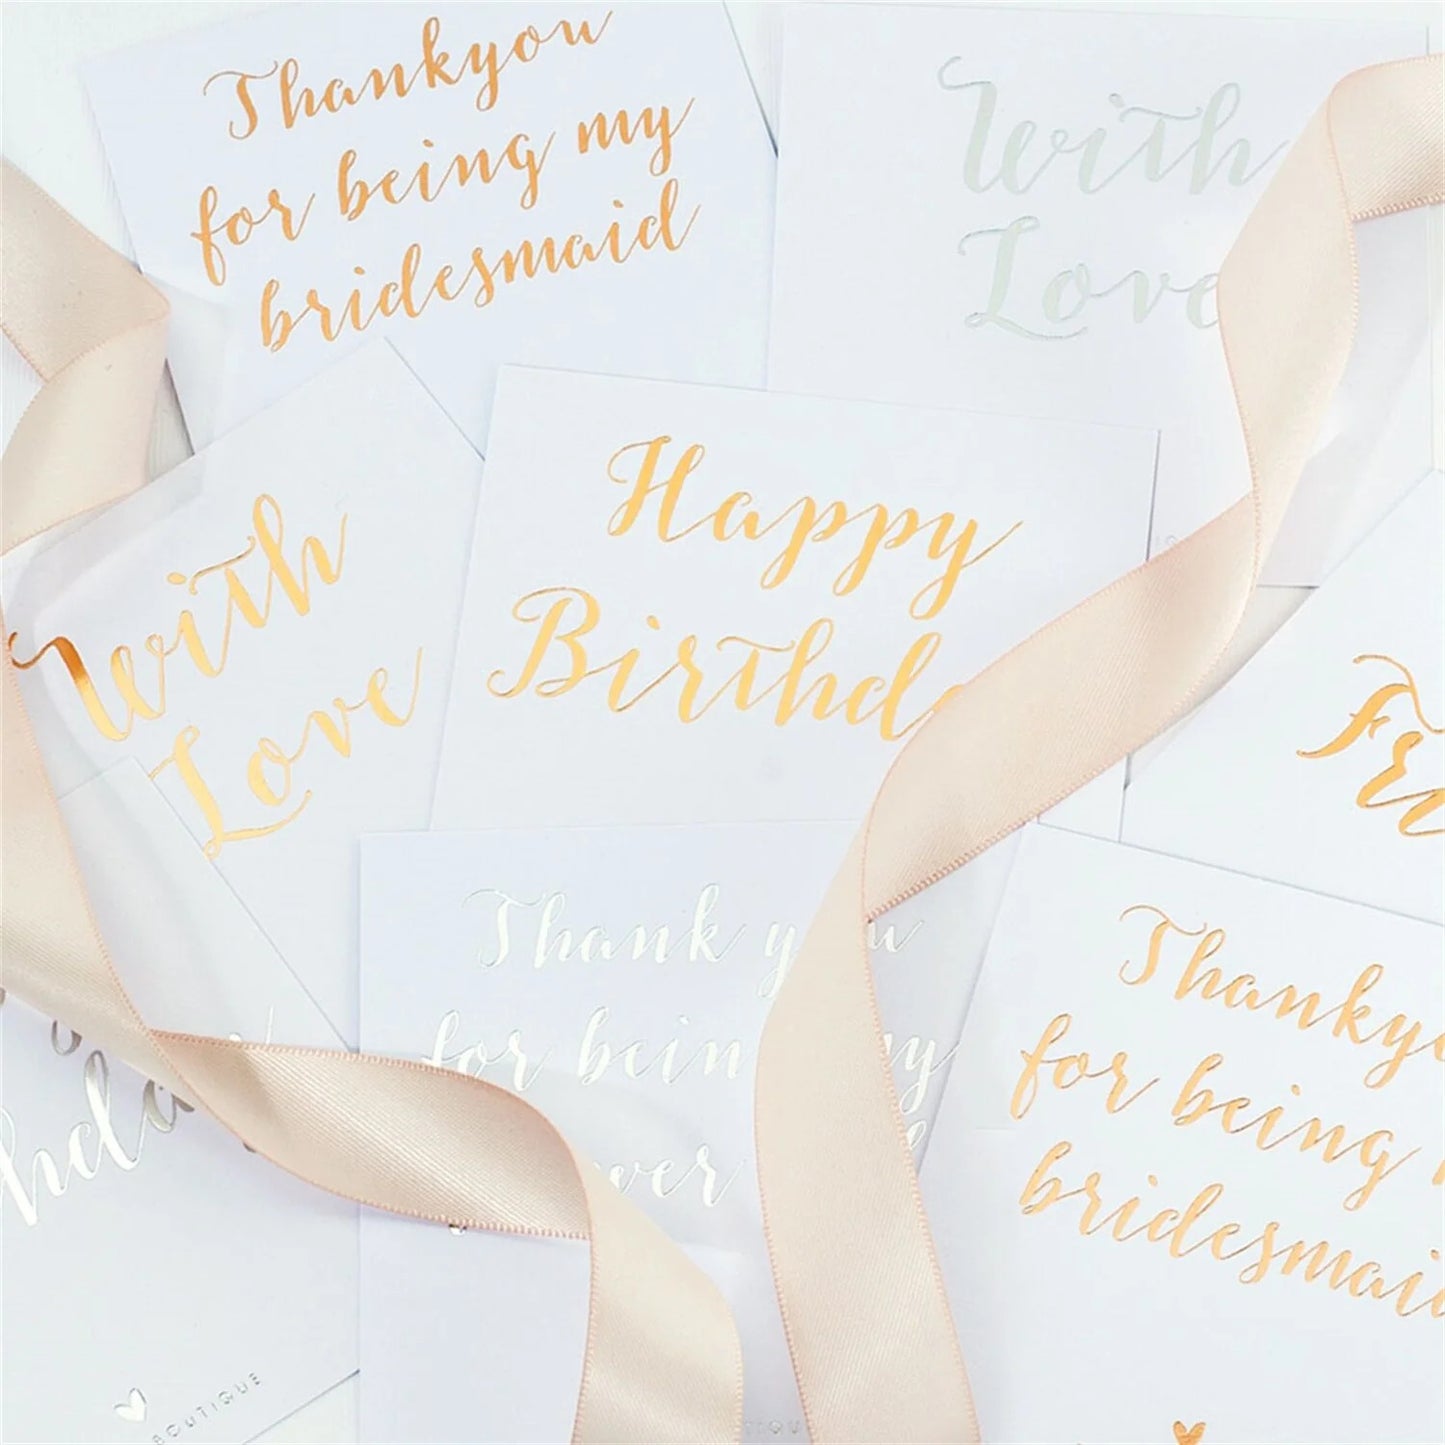 Thankyou
for being my
bridesmaid
With
Love
With
Love
Happy
Birthd
Fr
Thank y u
for bein my
wer
Thanky
for being
bridesmai
hda
BOUTIQUE